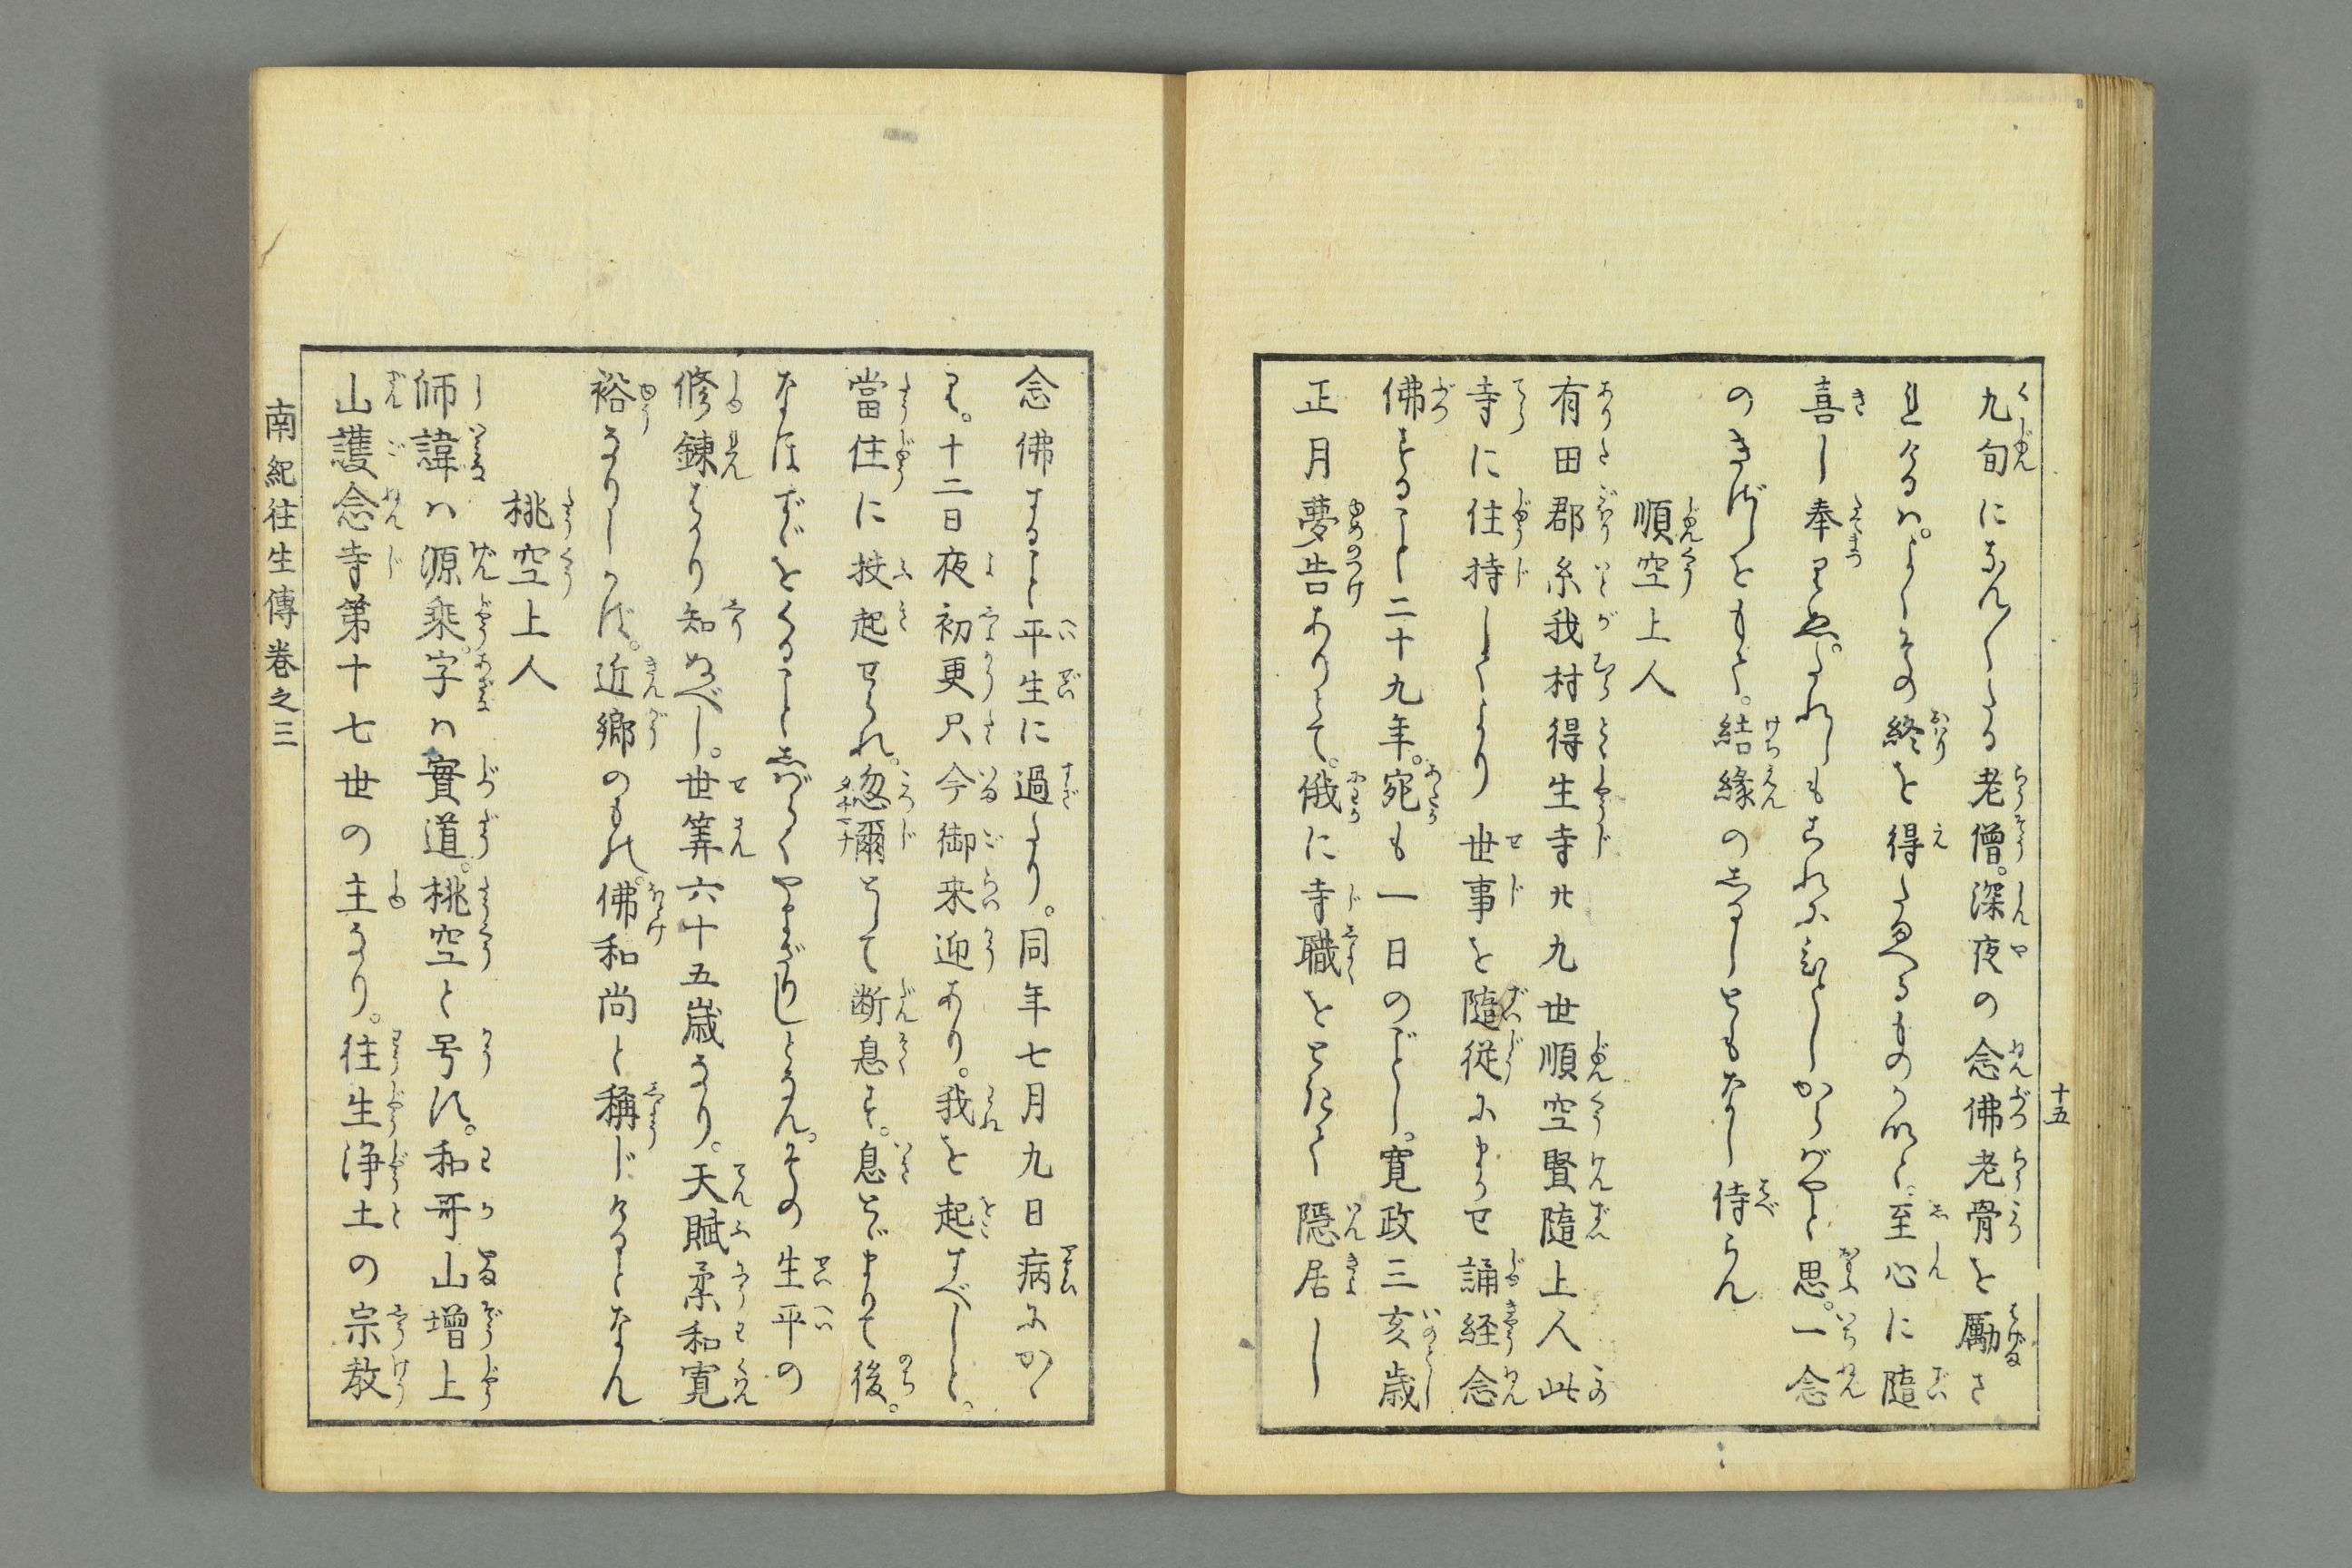 十五
九旬になん〳〵たる老僧。深夜の念佛老骨を勵さ
れけるハ。よくその終を得たまへるものかなと。至心に隨
喜し奉りぬ。たれしもこれにひとしからばやと思。一念
のきざしをもて。結縁のしるしともなし侍らん
順空上人
有田郡糸我村得生寺廿九世順空賢隨上人此
寺に住持してより世事を隨從にまかせ誦経念
佛すること二十九年。宛も一日のごとし。寛政三亥歳
正月夢告ありとて。俄に寺職をとさけて隠居し
念佛すること平生に過たり。同年七月九日病にかゝ
り。十二日夜初更只今御来迎あり。我を起すべしと。
當住に扶起せられ。忽爾として断息す。息とゞまりて後。
なほずゞをくることしばらくやまざりしとなん。その生平の
修錬はかり知ぬべし。世筭六十五歳なり。天賦柔和寛
裕なりしかば。近郷のもの。佛和尚と稱じけるとなん
桃空上人
師諱ハ源乘。字ハ實道。桃空と号す。和哥山增上
山護念寺第十七世の主なり。往生浄土の宗教
南紀往生傳巻之三